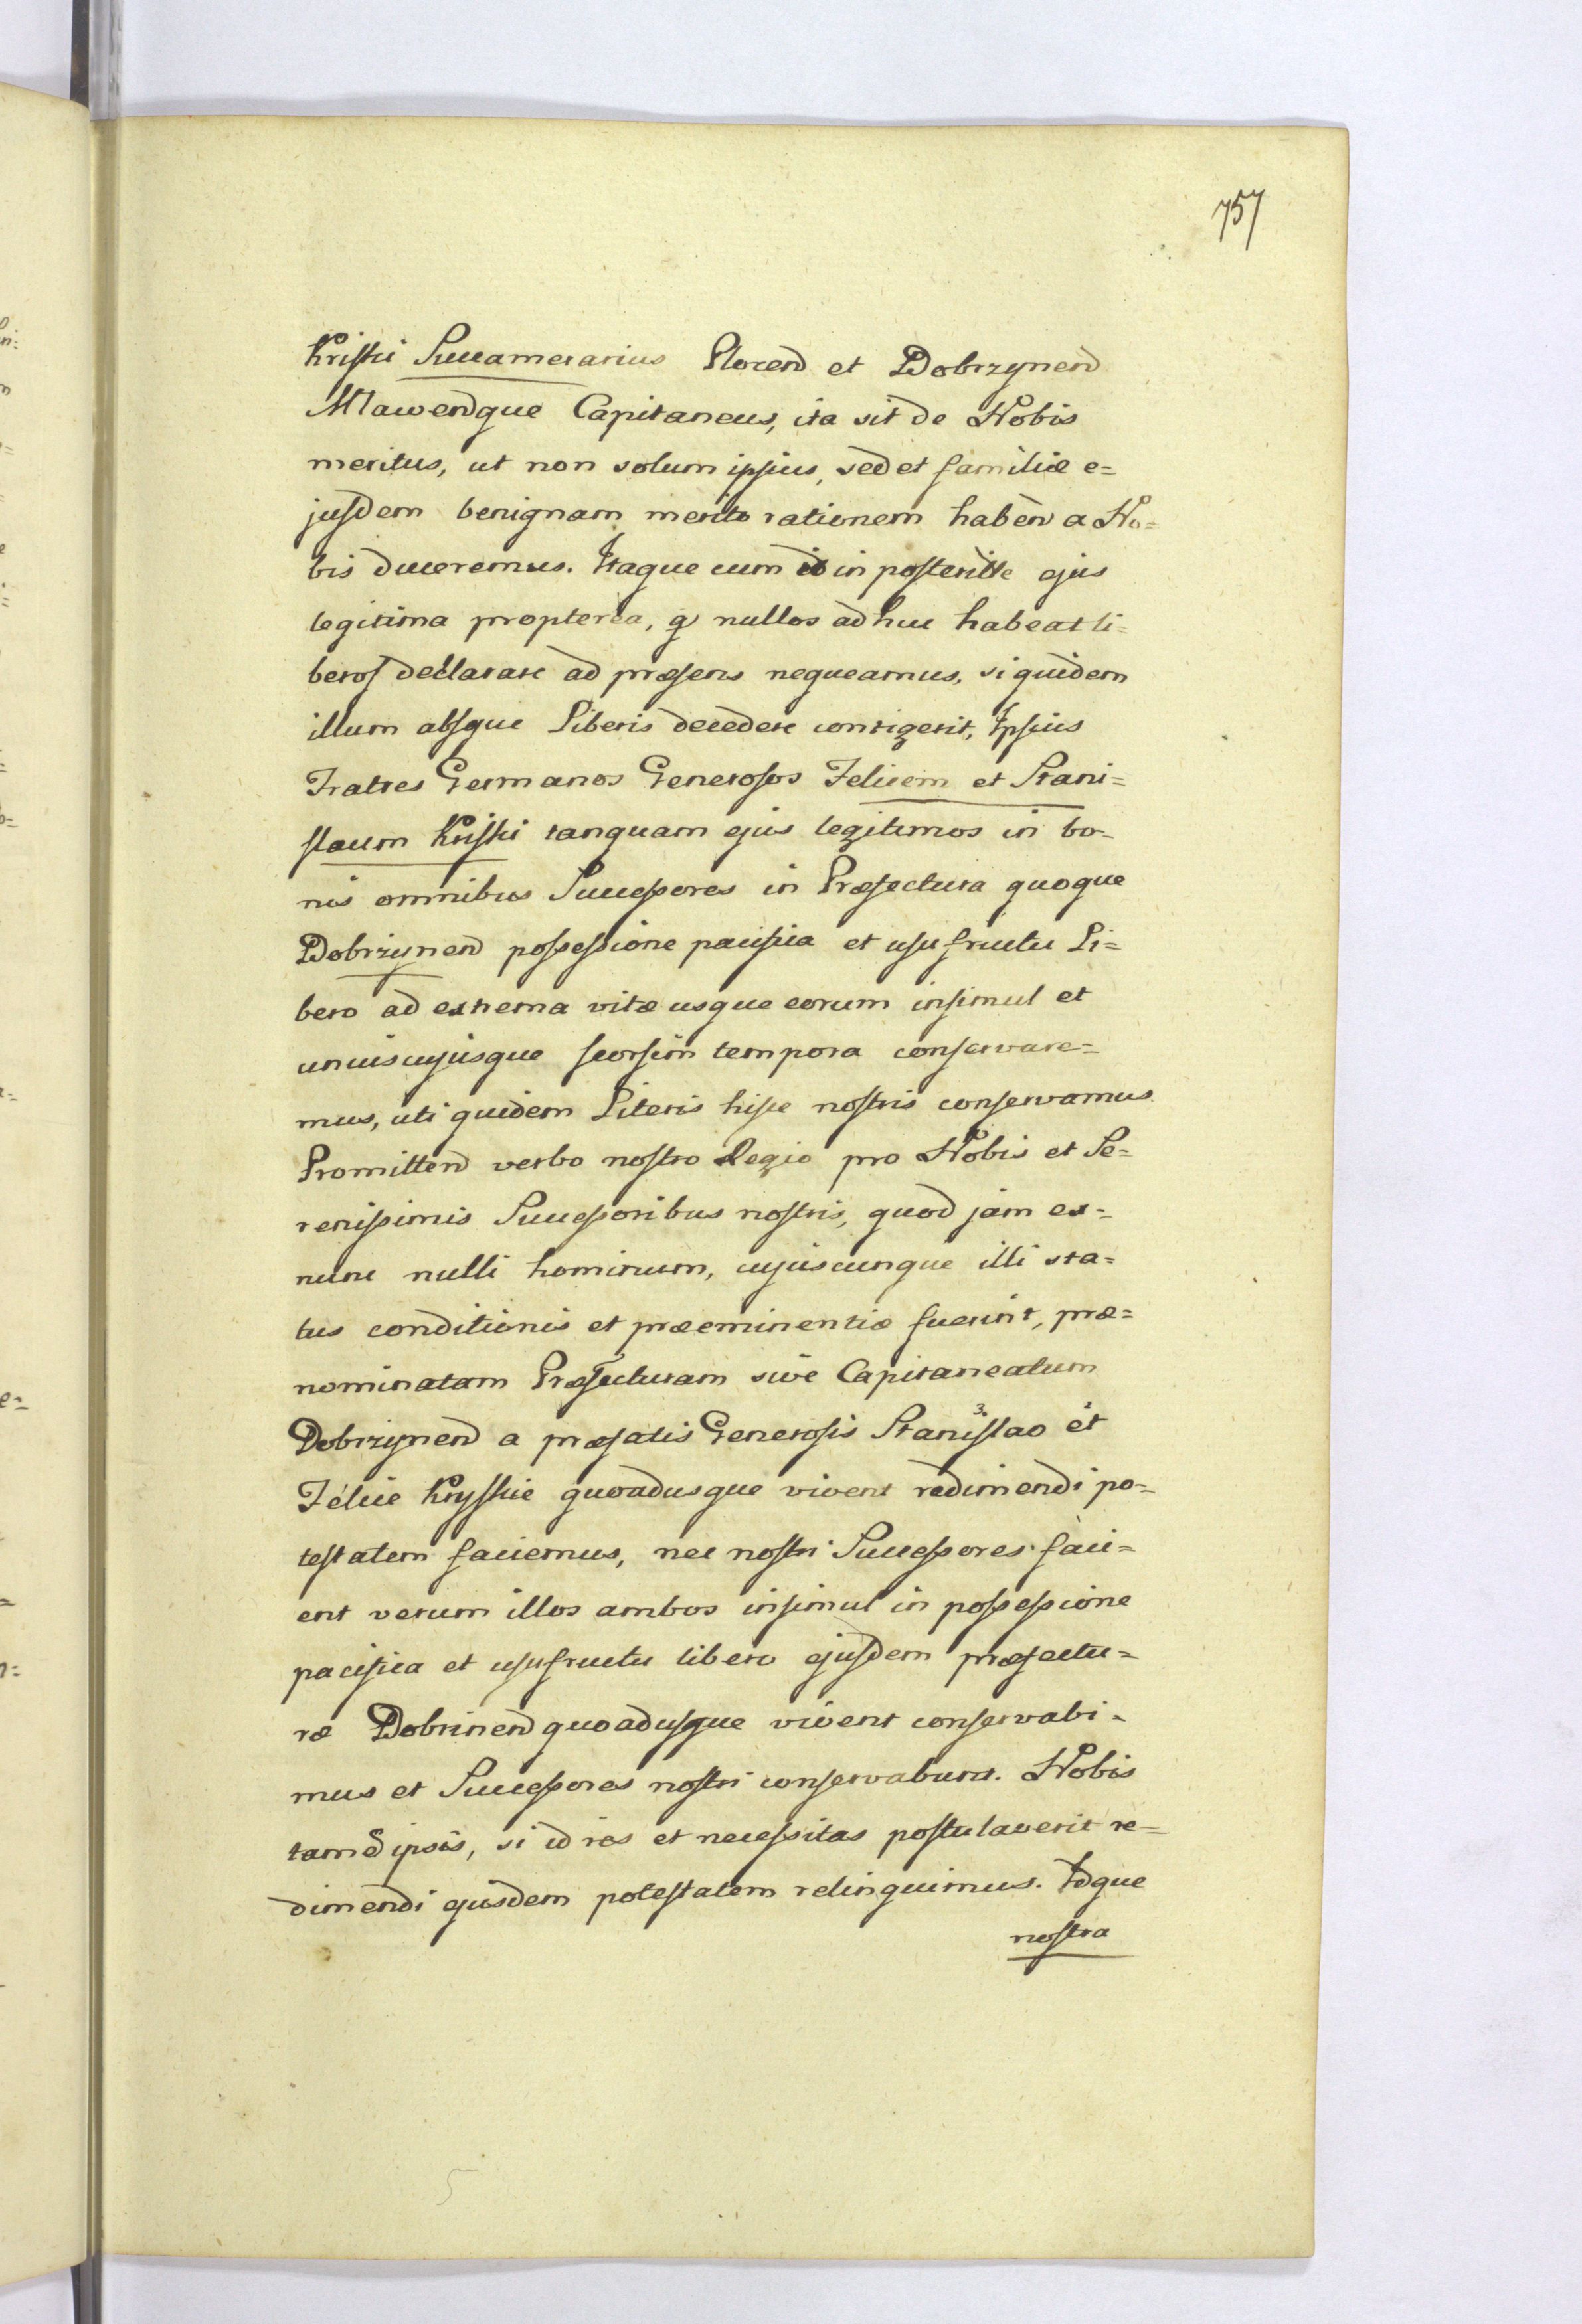 757
Kriski Succamerarius Plocen͠ et Dobrzynen͠
Mlawen͠que Capitaneus, ita sit de Nobis
meritus, ut non solum ipsius, sed et familiæ e=
jusdem benignam merito rationem haben͠ a No=
bis duceremus. Itaque cum id in posterit͠te ejus
legitima propterea, q͠ nullos adhuc habeat li=
beros declarare ad præsens nequeamus, si quidem
illum absque Liberis decedere contigerit, Ipsius
Fratres Germanos Generosos Felicem et Stani=
slaum Kriski tanquam ejus legitimos in bo=
nis omnibus Successores in Præfectura quoque
Dobrzynen͠ possessione pacifica et usufructu Li=
bero ad extrema vitæ usque eorum insimul et
uniuscujusque seorsim tempora conservare=
mus, uti quidem Literis hisce nostris conservamus.
Promitten͠ verbo nostro Regio pro Nobis et Se=
renissimis Successoribus nostris, quod jam ex=
nunc nulli hominum, cujuscunque illi sta=
tus conditionis et præeminentiæ fuerint, præ=
nominatam Præfecturam sive Capitaneatum
Dobrzynen͠ a præfatis Generosis Stanislao et
Felice Kryskie quoadusque vivent redimendi po=
testatem faciemus, nec nostri Successores faci=
ent verum illos ambos insimul in possessione
pacifica et usufructu libero ejusdem præfectu=
ræ Dobrinen͠ quoadusque vivent conservabi=
mus et Successores nostri conservabunt. Nobis
tame͠ ipsis, si id res et necessitas postulaverit re=
dimendi ejusdem potestatem relinquimus. Idque
nostra